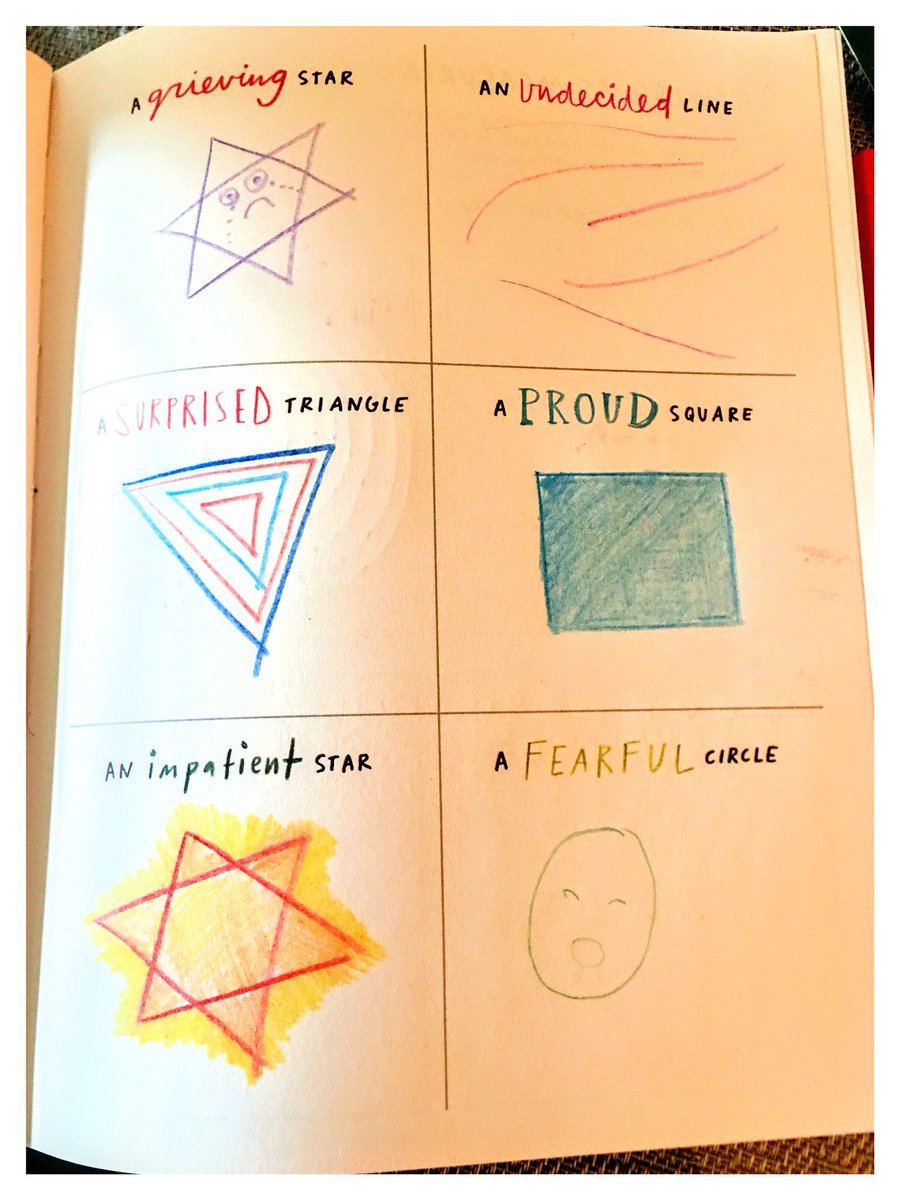 A grieving STAR
AN undecided LINE
A SURPRISED TRIANGLE
A PROUD SQUARE
AN impatient STAR
A FEARFUL CIRCLE